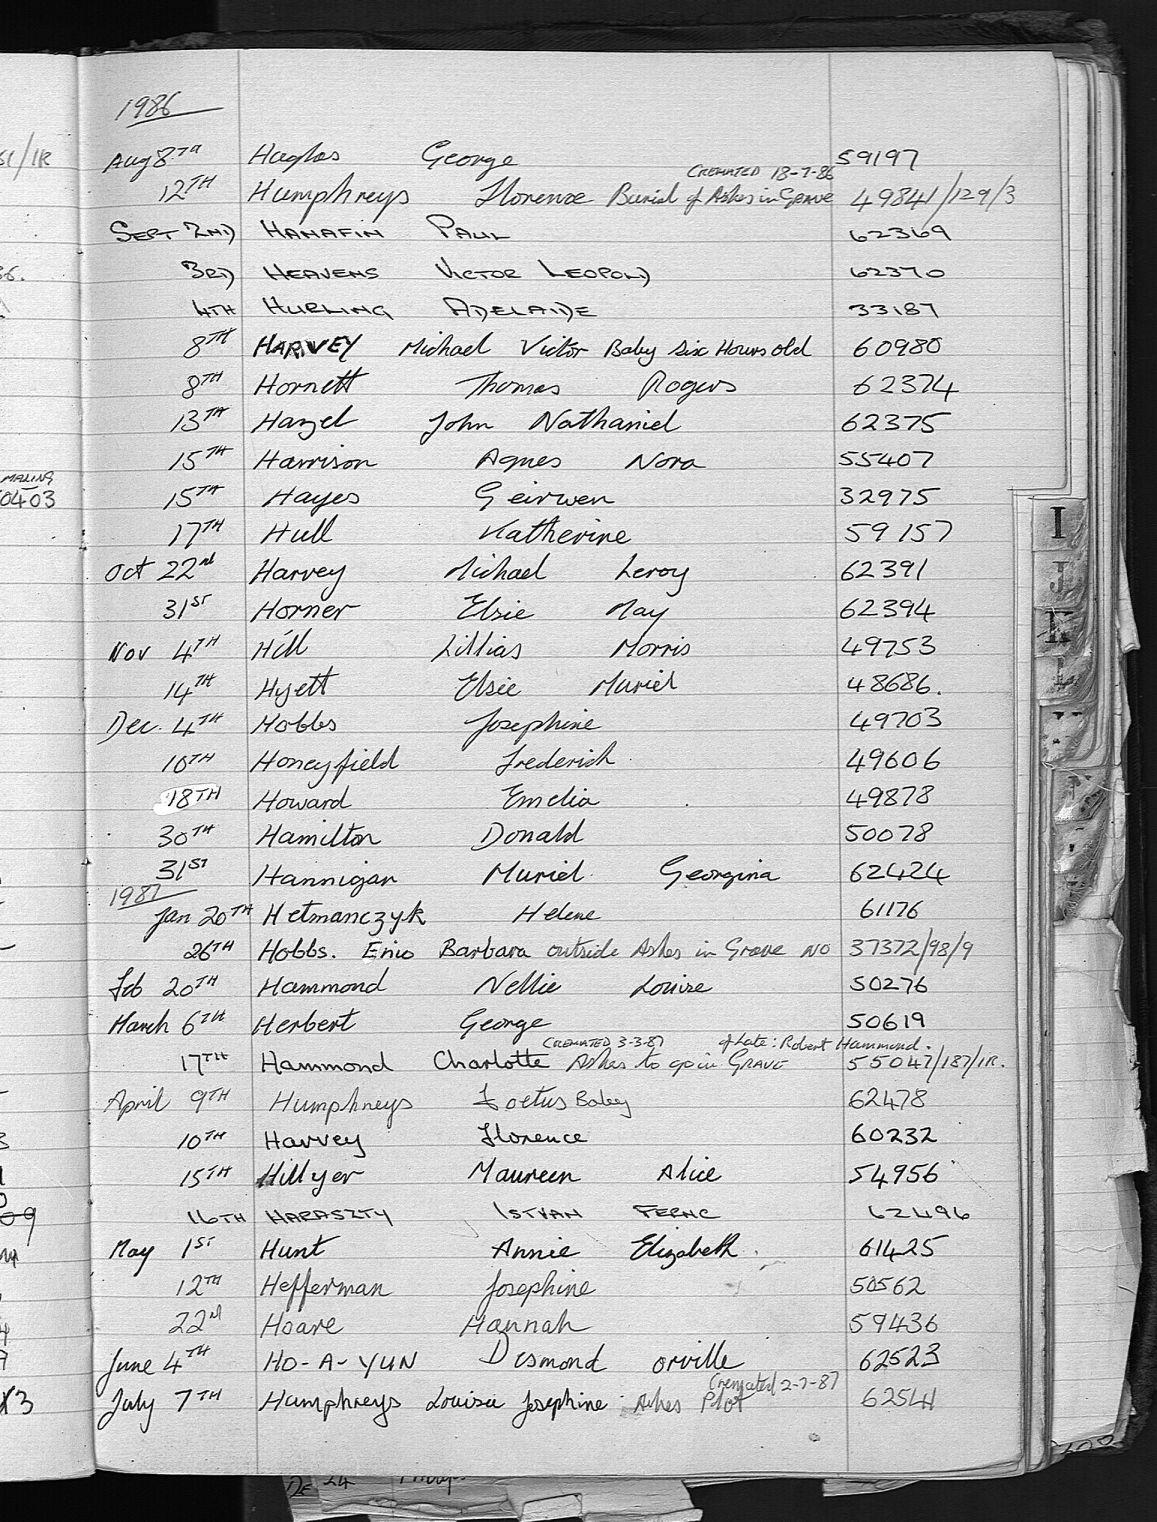 1986
Aug 8TH Hughes George 59197
CREMATED 18-7-86
12TH Humphreys Florence Burial of Ashes in GRAVE 49841/129/3
SEPT 2ND HANAFIN PAUL 62369
3RD HEAVENS VICTOR LEOPOLD 62370
4TH HURLING ADELAIDE 33187
8TH HARVEY Michael Victor Baby Six Hours old 60980
8TH Hornett Thomas Rogers 62374
13TH Hazel John Nathaniel 62375
15TH Harrison Agnes Nora 55407
15TH Hayes Geirwen 32975
17TH Hull Katherine 59157
Oct 22nd Harvey Michael Leroy 62391
31ST Horner Elsie May 62394
Nov 4TH Hill Lillias Morris 49753
14TH Hyett Elsie Muriel 48686.
Dec. 4TH Hobbs Josephine 49703
10TH Honeyfield Frederick 49606
18TH Howard Emelia 49878
30TH Hamilton Donald 50078
31ST Hannigan Muriel Georgina 62424
1987
Jan 20TH Hetmanczyk Helene 61176
26TH Hobbs. Enio Barbara outside Ashes in Grave NO 37372/98/9
Feb 20TH Hammond Nellie Louise 50276
March 6TH Herbert George 50619
CREMATED 3-3-87 of Late: Robert Hammond.
17TH Hammond Charlotte Ashes to go in GRAVE 55047/187/1R.
April 9TH Humphreys Foetus Baby 62478
10TH Harvey Florence 60232
15TH Hillyer Maureen Alice 54956
16TH HARASZTY ISTVAN FERNC 62496
May 1ST Hunt Annie Elizabeth. 61425
12TH Hefferman Josephine 50562
22nd Hoare Hannah 59436
June 4TH HO-A-YUN Desmond orville 62523
Cremated 2-7-87
July 7TH Humphreys Louisa Josephine Ashes Plot 62541
I
J
K
L